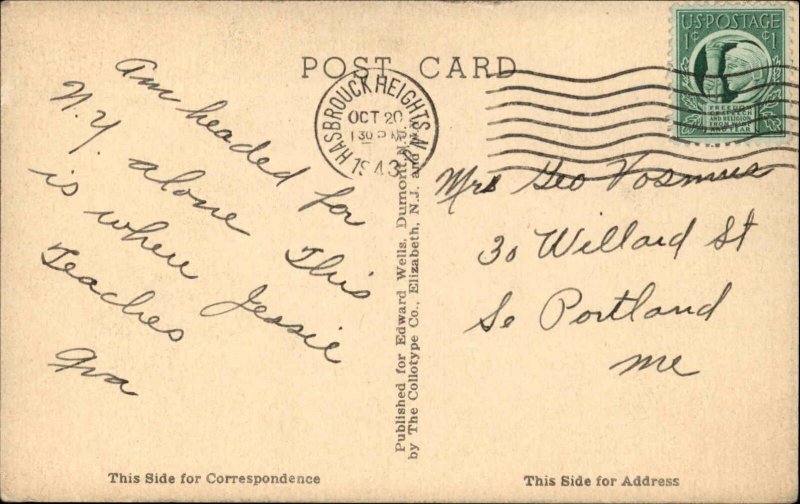 POST CARD
U.S. POSTAGE
1¢ 1¢
FREEDOM
OF SPEECH
AND RELIGION,
FROM WANT
AND FEAR
HASBROUCK HEIGHTS N.J.
OCT 20
1 30 PM
1943
Am headed for
N.Y. alone This
is where Jessie
Teaches
Mrs Geo
30 Willard St
So Portland
Me
Published for Edward Wells, Dumont, N.J.
by The Collotype Co., Elizabeth, N.J. and
This Side for Correspondence
This Side for Address